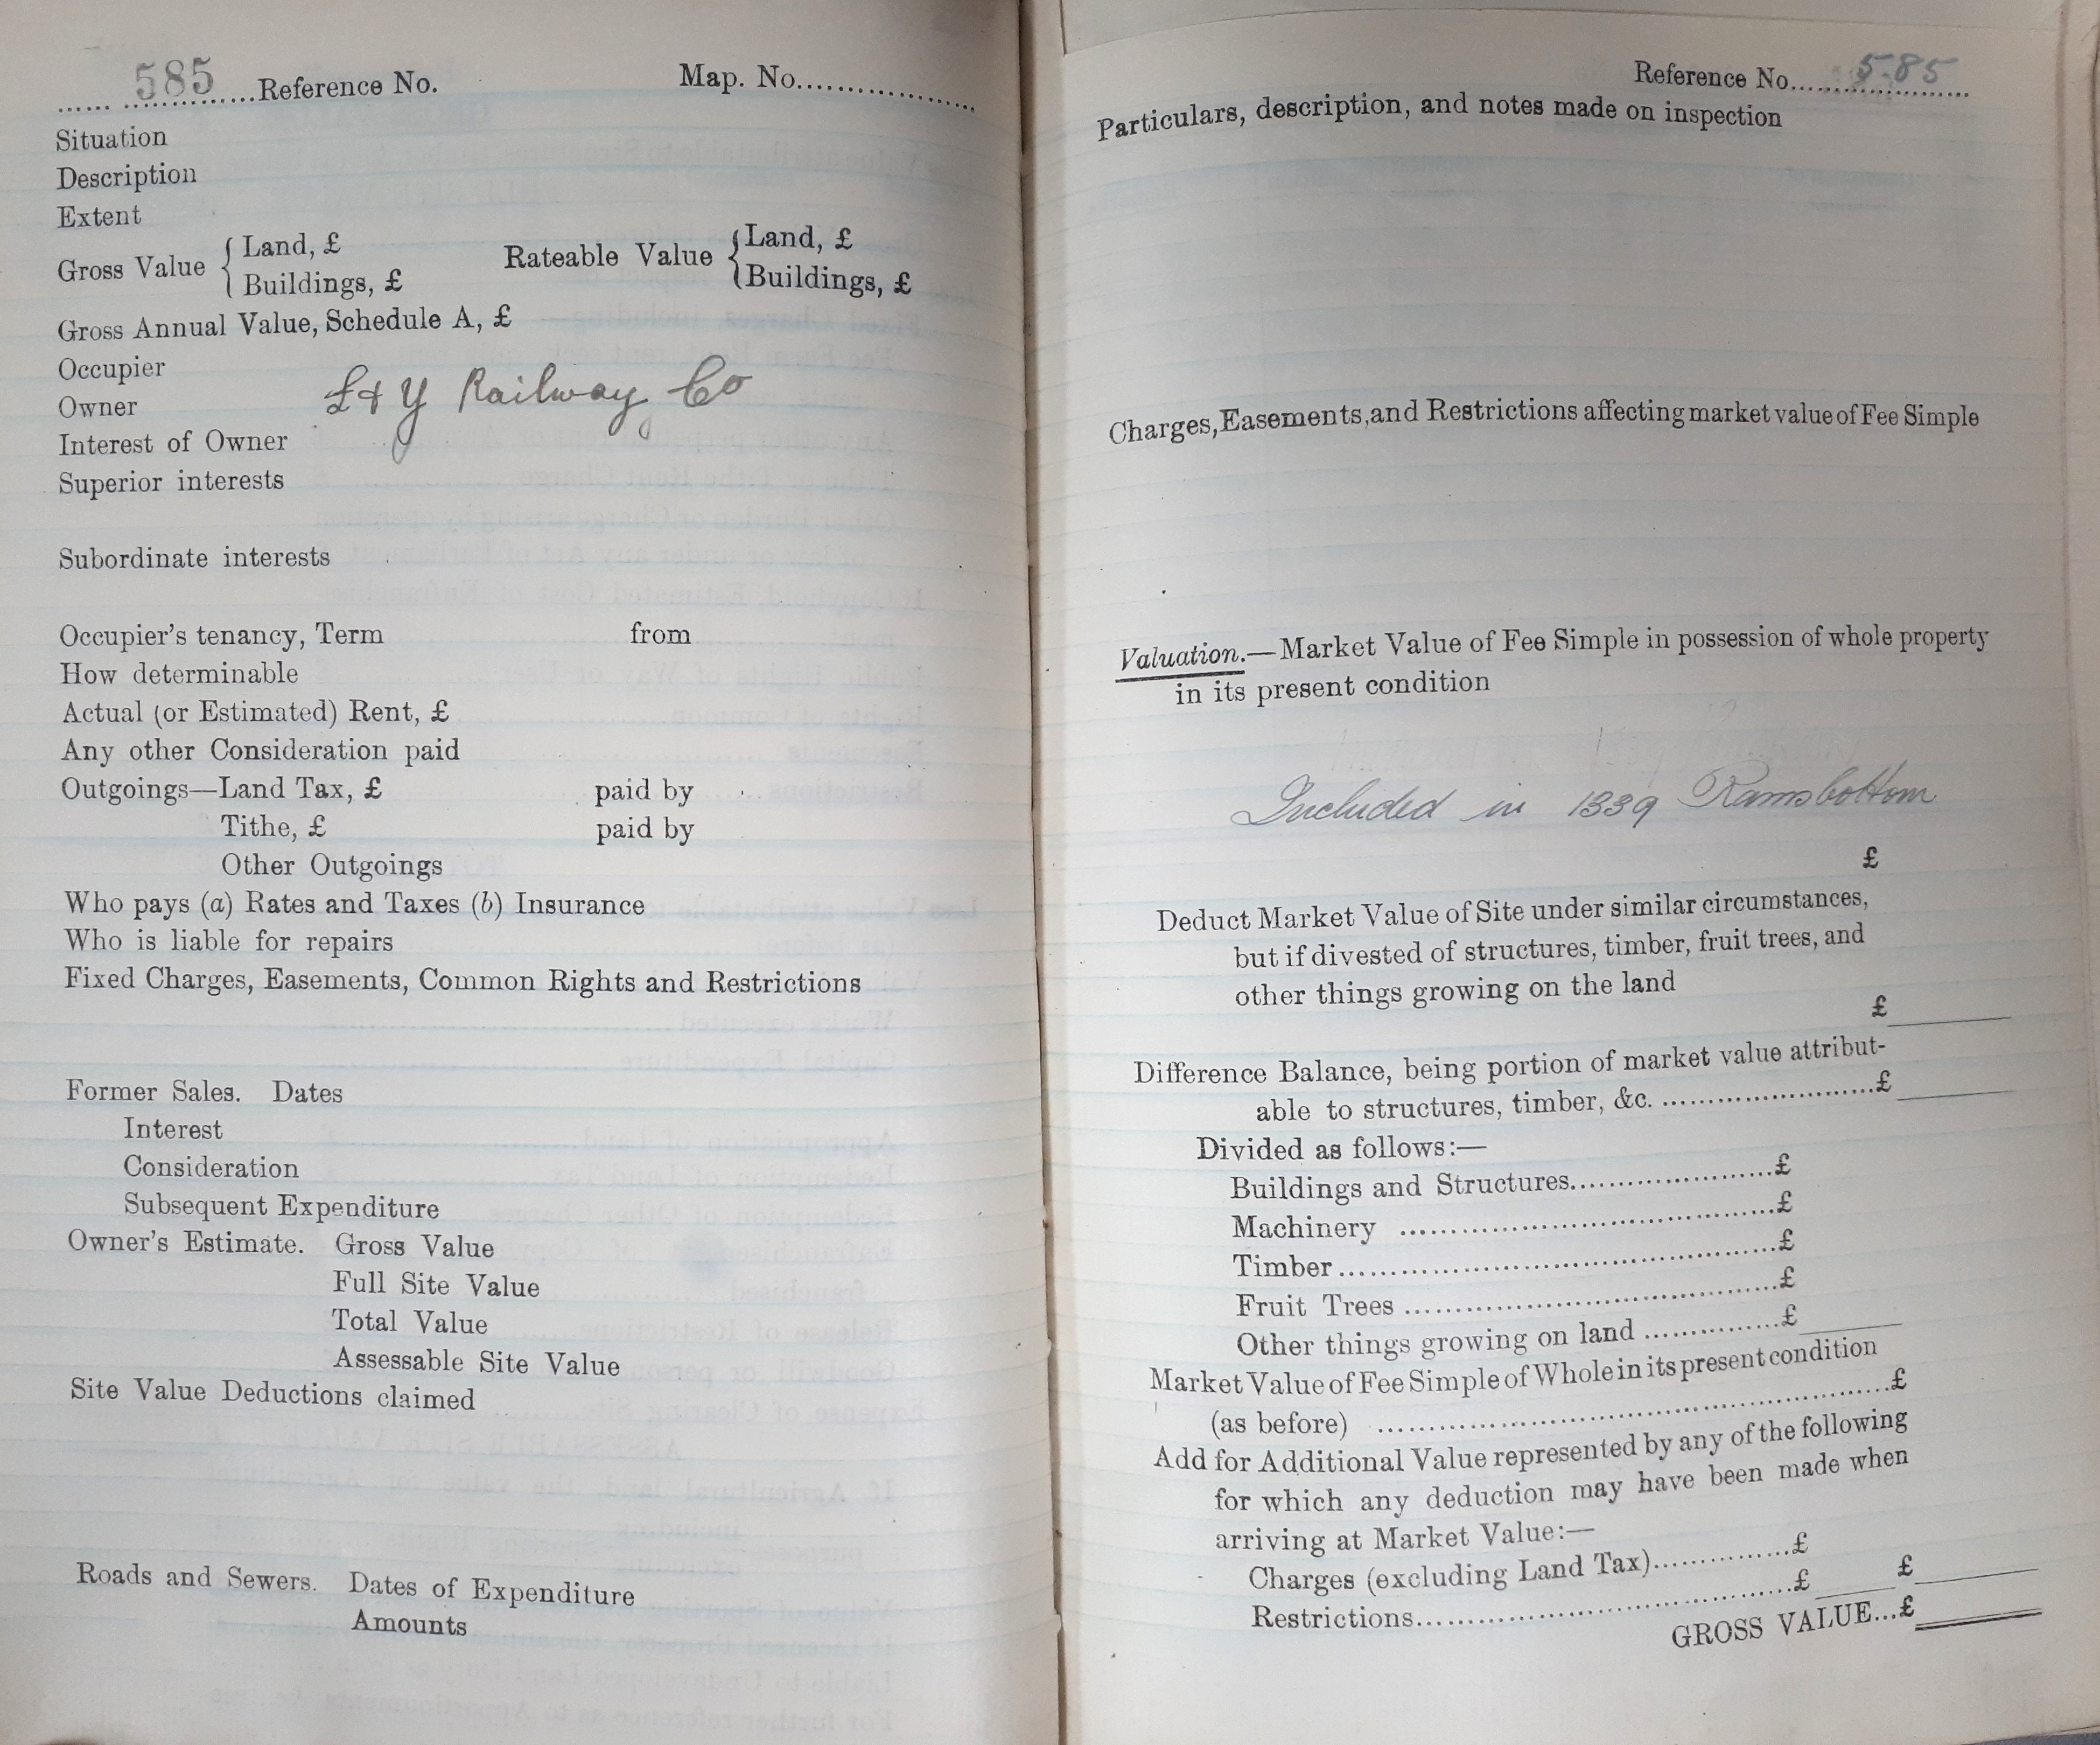 585 Reference No. Map. No.
Situation
Description
Extent
Gross Value { Land, £ Rateable Value { Land, £
Buildings, £ Buildings, £
Gross Annual Value, Schedule A, £
Occupier
Owner L & Y Railway Co
Interest of Owner
Superior interests
Subordinate interests
Occupier's tenancy, Term from
How determinable
Actual (or Estimated) Rent, £
Any other Consideration paid
Outgoings—Land Tax, £ paid by
Tithe, £ paid by
Other Outgoings
Who pays (a) Rates and Taxes (b) Insurance
Who is liable for repairs
Fixed Charges, Easements, Common Rights and Restrictions
Former Sales. Dates
Interest
Consideration
Subsequent Expenditure
Owner's Estimate. Gross Value
Full Site Value
Total Value
Assessable Site Value
Site Value Deductions claimed
Roads and Sewers. Dates of Expenditure
Amounts
Reference No. 585
Particulars, description, and notes made on inspection
Charges, Easements, and Restrictions affecting market value of Fee Simple
Valuation.—Market Value of Fee Simple in possession of whole property
in its present condition
Included in 1339 Ramsbottom
£
Deduct Market Value of Site under similar circumstances,
but if divested of structures, timber, fruit trees, and
other things growing on the land
£
Difference Balance, being portion of market value attribut-
able to structures, timber, &c. £
Divided as follows:—
Buildings and Structures £
Machinery £
Timber £
Fruit Trees £
Other things growing on land £
Market Value of Fee Simple of Whole in its present condition
(as before) £
Add for Additional Value represented by any of the following
for which any deduction may have been made when
arriving at Market Value:—
Charges (excluding Land Tax) £
Restrictions £ £
GROSS VALUE...£